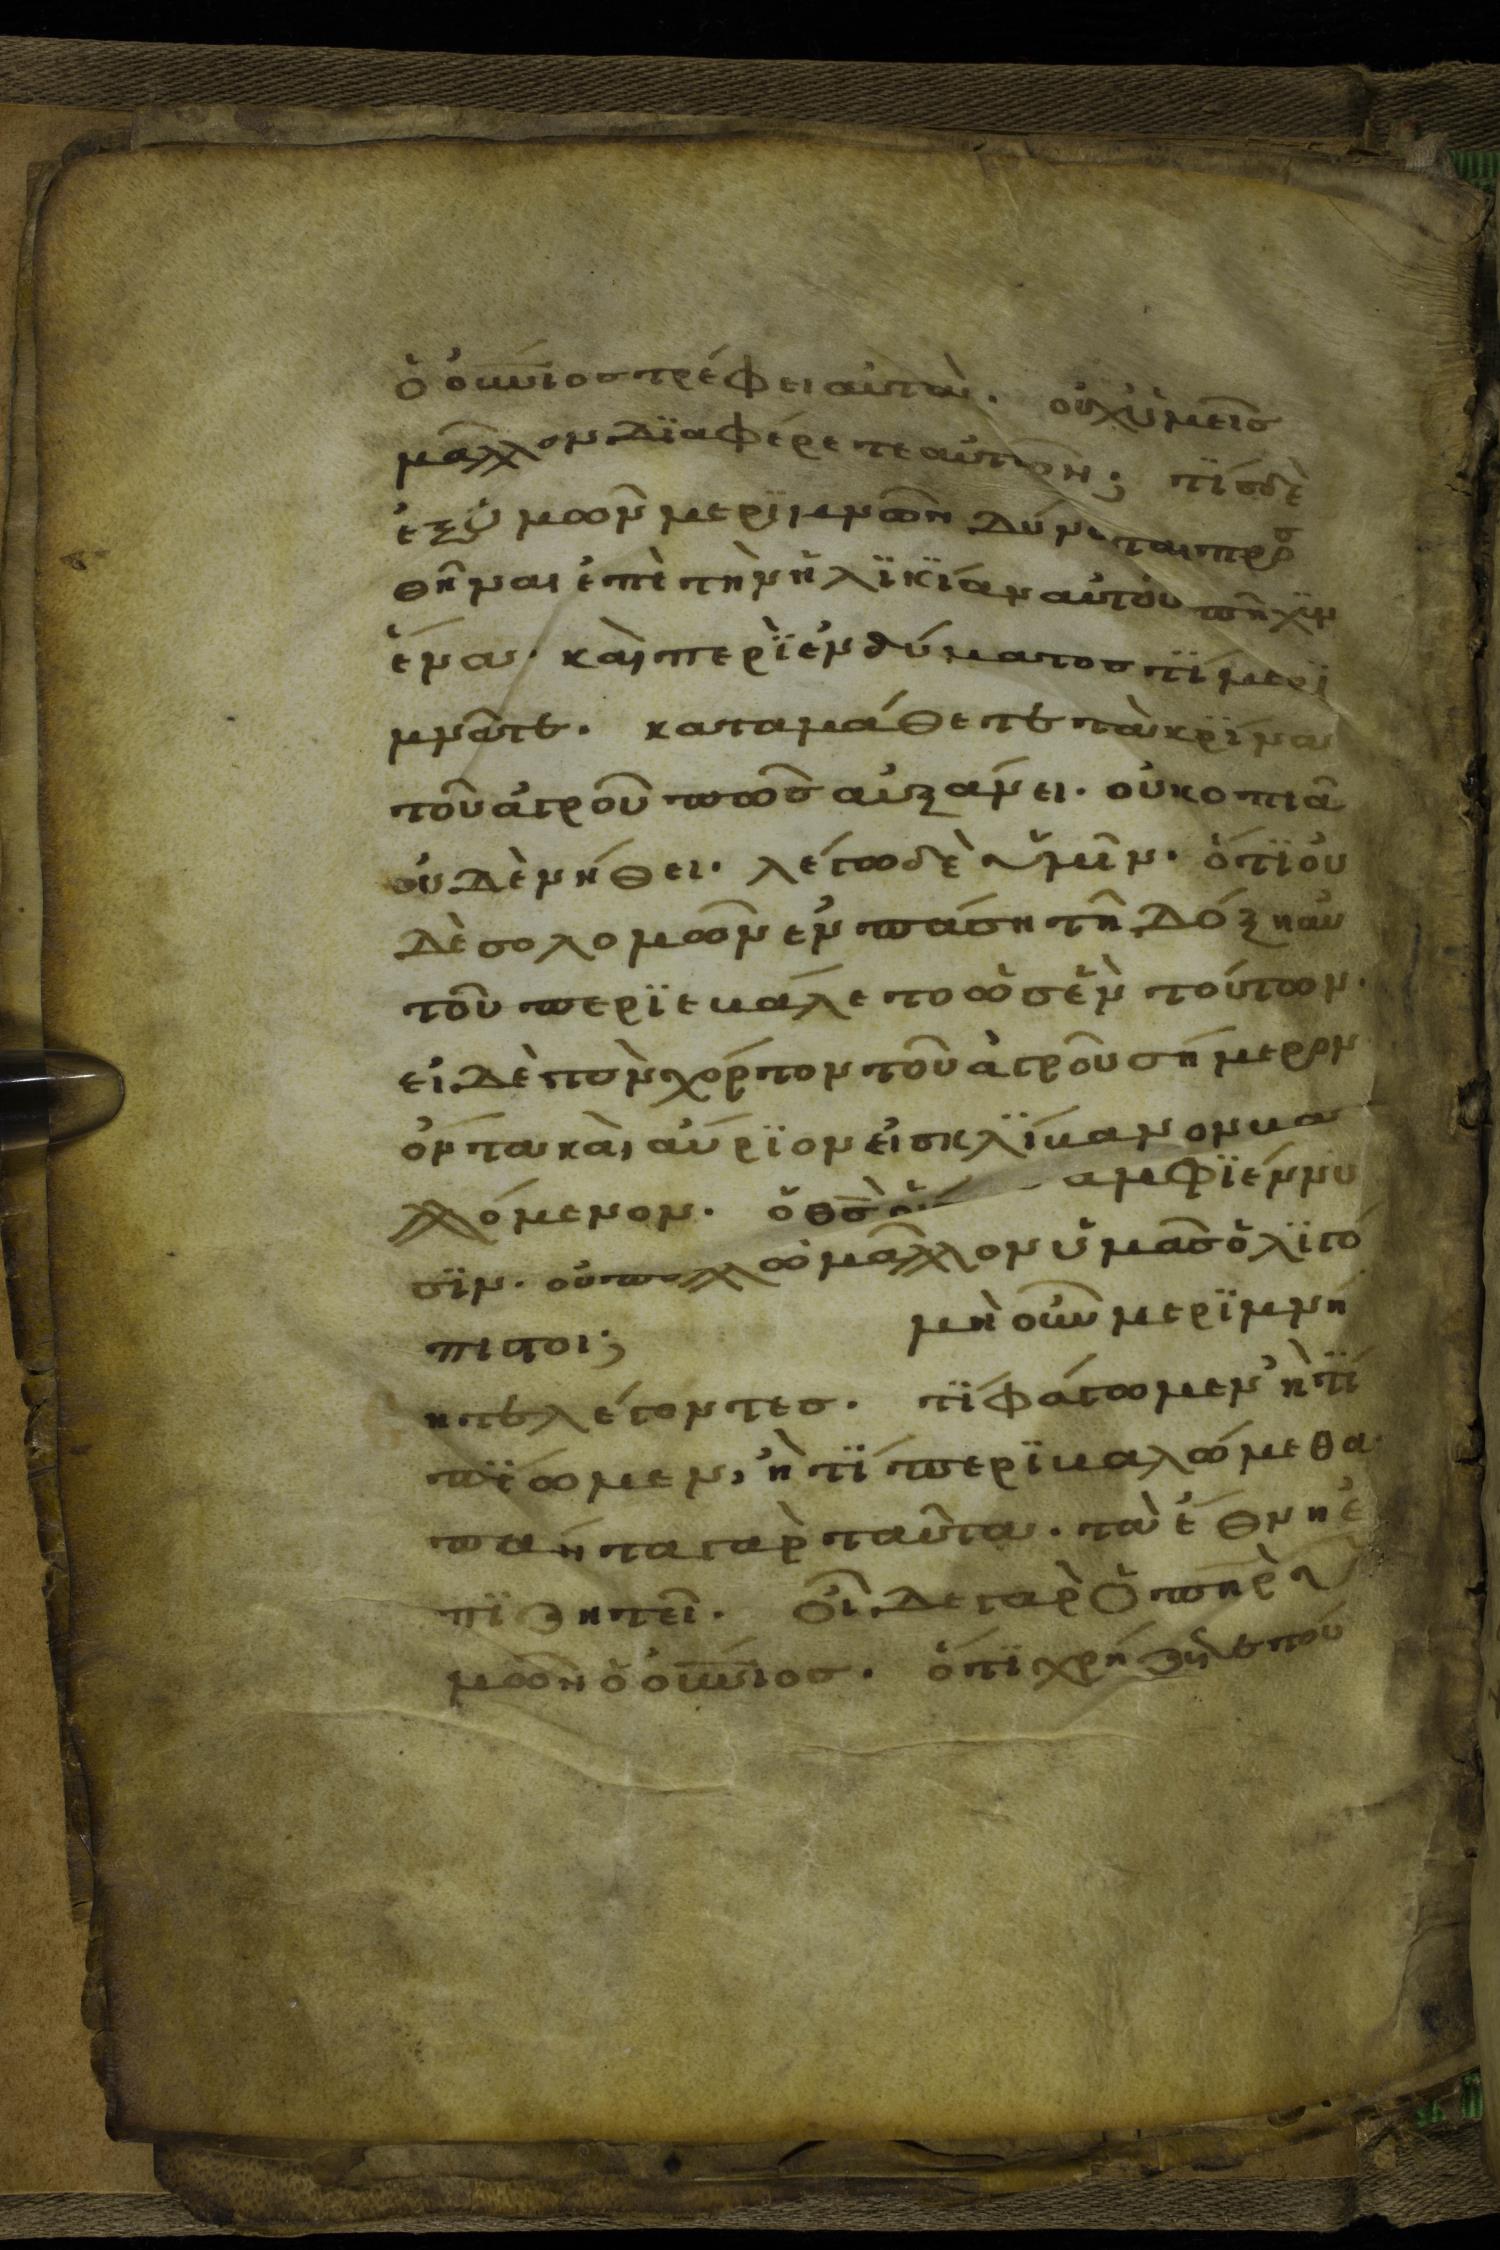 ὁ οὐνιος τρέφει αὐτά. οὐχ ὑμεῖς
μᾶλλον διαφέρετε αὐτῶν; τίς δὲ
ἐξ ὑμῶν μεριμνῶν δύναται προσ
θῆναι ἐπὶ τὴν ἡλϊκϊίαν αὐτοῦ πῆχϋν
ἕνα. καὶ περὶ ἐνδύματος τί μερι
μνᾶτε. καταμάθετε τὰ κρίνα
τοῦ ἀγροῦ πῶς αὐξάνει. οὐ κοπιᾶ
οὐδὲ νήθει. λέγω δὲ ὑμῖν. ὅτι οὐ
δὲ σολομὼν ἐν πάση τῆ δόξη αὐ
τοῦ περϊεβάλετο ὡς ἓν τούτων.
εἰ δὲ τὸν χόρτον τοῦ ἀγροῦ σήμερον
ὄντα καὶ αὔρϊον εἰς κλϊβανον βα
λλόμενον. ὁ θσ̄ ἀμφϊέννυ
σϊν. οὐ πολλῶ μᾶλλον ὑμᾶς ὀλϊγό
πιστοι; μὴ οὖν μερϊμνή
ητε λέγοντες. τί φάγωμεν ἢ τί
πίωμεν, ἢ τί περϊβαλώμεθα.
πάντα γὰρ ταῦτα. τὰ ἔθνη ἐ
πϊζητεῖ. οἶδε γὰρ ὁ πηρ ὑ
μῶν ὁ οὐνιος. ὅτι χρήζετε του